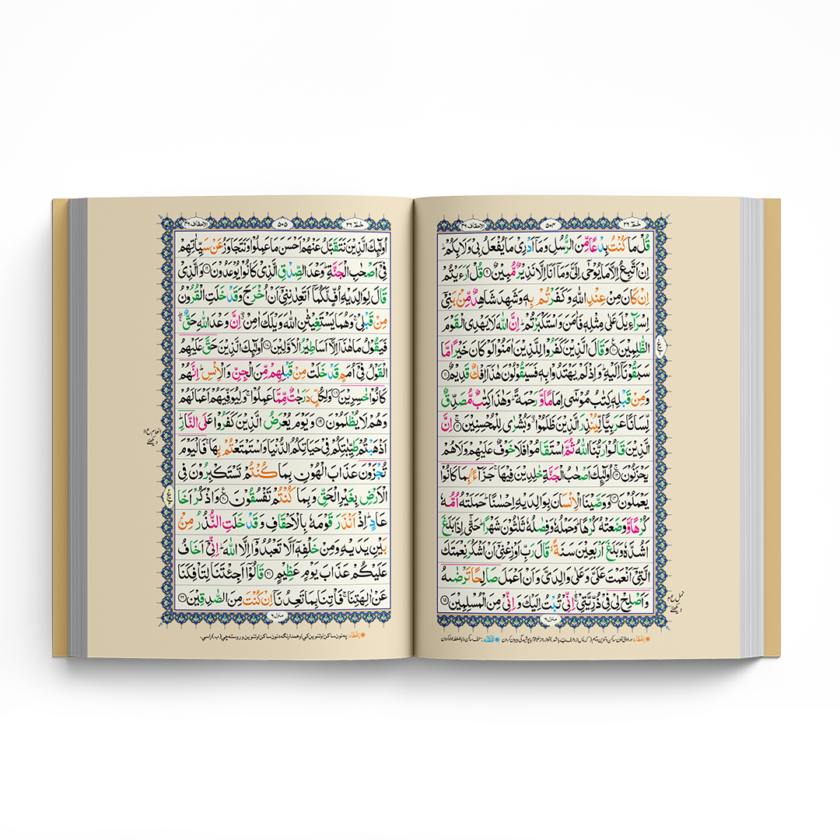 قُلْ مَا كُنْتُ بِدْعًا مِّنَ الرُّسُلِ وَمَآ اَدْرِىْ مَا يُفْعَلُ بِىْ وَلَا بِكُمْ
اِنْ اَتَّبِعُ اِلَّا مَا يُوْحٰٓى اِلَىَّ وَمَآ اَنَا اِلَّا نَذِيْرٌ مُّبِيْنٌ ۹ قُلْ اَرَءَيْتُمْ
اِنْ كَانَ مِنْ عِنْدِ اللّٰهِ وَكَفَرْتُمْ بِهٖ وَشَهِدَ شَاهِدٌ مِّنْۢ بَنِىْٓ
اِسْرَآءِيْلَ عَلٰى مِثْلِهٖ فَاٰمَنَ وَاسْتَكْبَرْتُمْ اِنَّ اللّٰهَ لَا يَهْدِى الْقَوْمَ
الظّٰلِمِيْنَ ۱۰ وَقَالَ الَّذِيْنَ كَفَرُوْا لِلَّذِيْنَ اٰمَنُوْا لَوْ كَانَ خَيْرًا مَّا
سَبَقُوْنَآ اِلَيْهِ وَاِذْ لَمْ يَهْتَدُوْا بِهٖ فَسَيَقُوْلُوْنَ هٰذَآ اِفْكٌ قَدِيْمٌ ۱۱
وَمِنْ قَبْلِهٖ كِتٰبُ مُوْسٰٓى اِمَامًا وَّرَحْمَةً وَهٰذَا كِتٰبٌ مُّصَدِّقٌ
لِّسَانًا عَرَبِيًّا لِّيُنْذِرَ الَّذِيْنَ ظَلَمُوْا وَبُشْرٰى لِلْمُحْسِنِيْنَ ۱۲ اِنَّ
الَّذِيْنَ قَالُوْا رَبُّنَا اللّٰهُ ثُمَّ اسْتَقَامُوْا فَلَا خَوْفٌ عَلَيْهِمْ وَلَا هُمْ
يَحْزَنُوْنَ ۱۳ اُولٰٓئِكَ اَصْحٰبُ الْجَنَّةِ خٰلِدِيْنَ فِيْهَا جَزَآءًۢ بِمَا كَانُوْا
يَعْمَلُوْنَ ۱۴ وَوَصَّيْنَا الْاِنْسَانَ بِوَالِدَيْهِ اِحْسٰنًا حَمَلَتْهُ اُمُّهٗ
كُرْهًا وَّوَضَعَتْهُ كُرْهًا وَحَمْلُهٗ وَفِصٰلُهٗ ثَلٰثُوْنَ شَهْرًا حَتّٰٓى اِذَا بَلَغَ
اَشُدَّهٗ وَبَلَغَ اَرْبَعِيْنَ سَنَةً قَالَ رَبِّ اَوْزِعْنِىْٓ اَنْ اَشْكُرَ نِعْمَتَكَ
الَّتِىْٓ اَنْعَمْتَ عَلَىَّ وَعَلٰى وَالِدَىَّ وَاَنْ اَعْمَلَ صَالِحًا تَرْضٰىهُ
وَاَصْلِحْ لِىْ فِىْ ذُرِّيَّتِىْ اِنِّىْ تُبْتُ اِلَيْكَ وَاِنِّىْ مِنَ الْمُسْلِمِيْنَ ۱۵
۵۰۵
اُولٰٓئِكَ الَّذِيْنَ نَتَقَبَّلُ عَنْهُمْ اَحْسَنَ مَا عَمِلُوْا وَنَتَجَاوَزُ عَنْ سَيِّاٰتِهِمْ
فِىْٓ اَصْحٰبِ الْجَنَّةِ وَعْدَ الصِّدْقِ الَّذِىْ كَانُوْا يُوْعَدُوْنَ ۱۶ وَالَّذِىْ
قَالَ لِوَالِدَيْهِ اُفٍّ لَّكُمَآ اَتَعِدٰنِنِىْٓ اَنْ اُخْرَجَ وَقَدْ خَلَتِ الْقُرُوْنُ
مِنْ قَبْلِىْ وَهُمَا يَسْتَغِيْثٰنِ اللّٰهَ وَيْلَكَ اٰمِنْ اِنَّ وَعْدَ اللّٰهِ حَقٌّ
فَيَقُوْلُ مَا هٰذَآ اِلَّآ اَسَاطِيْرُ الْاَوَّلِيْنَ ۱۷ اُولٰٓئِكَ الَّذِيْنَ حَقَّ عَلَيْهِمُ
الْقَوْلُ فِىْٓ اُمَمٍ قَدْ خَلَتْ مِنْ قَبْلِهِمْ مِّنَ الْجِنِّ وَالْاِنْسِ اِنَّهُمْ
كَانُوْا خٰسِرِيْنَ ۱۸ وَلِكُلٍّ دَرَجٰتٌ مِّمَّا عَمِلُوْا وَلِيُوَفِّيَهُمْ اَعْمَالَهُمْ
وَهُمْ لَا يُظْلَمُوْنَ ۱۹ وَيَوْمَ يُعْرَضُ الَّذِيْنَ كَفَرُوْا عَلَى النَّارِ
اَذْهَبْتُمْ طَيِّبٰتِكُمْ فِىْ حَيَاتِكُمُ الدُّنْيَا وَاسْتَمْتَعْتُمْ بِهَا فَالْيَوْمَ
تُجْزَوْنَ عَذَابَ الْهُوْنِ بِمَا كُنْتُمْ تَسْتَكْبِرُوْنَ فِى
الْاَرْضِ بِغَيْرِ الْحَقِّ وَبِمَا كُنْتُمْ تَفْسُقُوْنَ ۲۰ وَاذْكُرْ اَخَا
عَادٍ اِذْ اَنْذَرَ قَوْمَهٗ بِالْاَحْقَافِ وَقَدْ خَلَتِ النُّذُرُ مِنْۢ
بَيْنِ يَدَيْهِ وَمِنْ خَلْفِهٖٓ اَلَّا تَعْبُدُوْٓا اِلَّا اللّٰهَ اِنِّىْٓ اَخَافُ
عَلَيْكُمْ عَذَابَ يَوْمٍ عَظِيْمٍ ۲۱ قَالُوْٓا اَجِئْتَنَا لِتَاْفِكَنَا
عَنْ اٰلِهَتِنَا فَاْتِنَا بِمَا تَعِدُنَآ اِنْ كُنْتَ مِنَ الصّٰدِقِيْنَ ۲۲